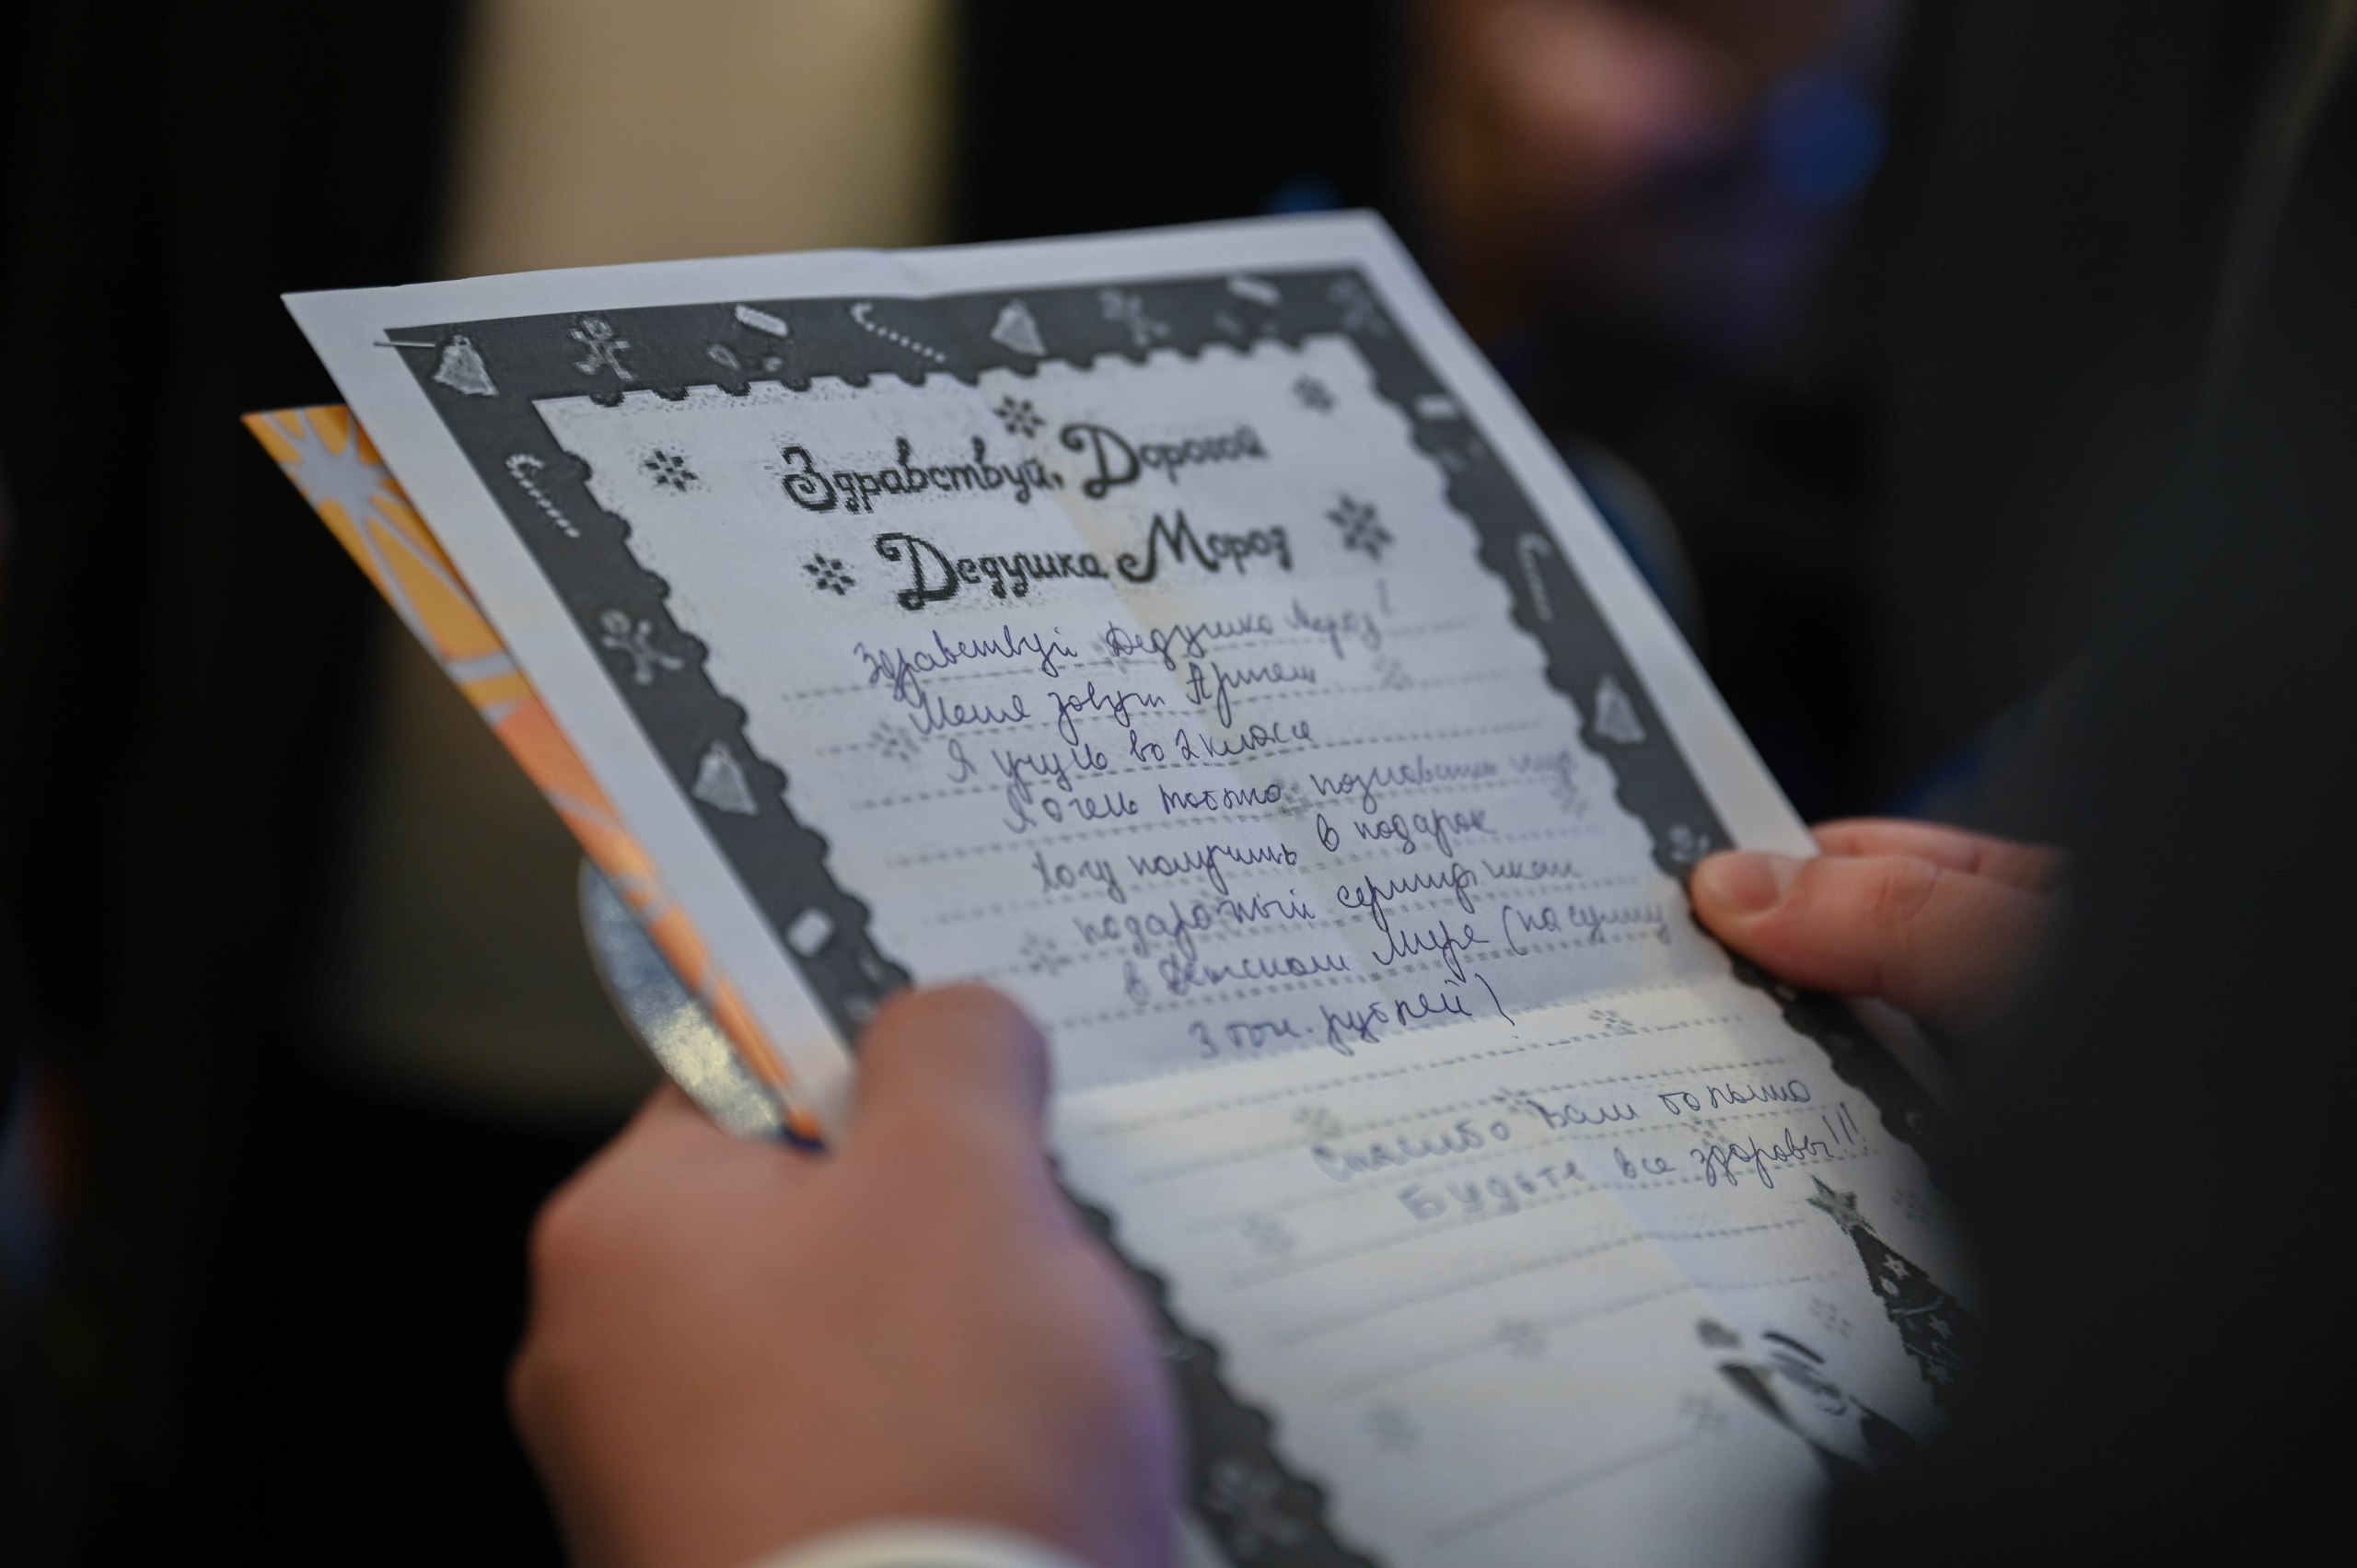 Здравствуй, Дорогой
Дедушка Мороз
Здравствуй Дедушка Мороз!
Меня зовут Артем
Я учусь во 2 класе
Я очень люблю познавать мир
Хочу получить в подарок
подарочный сертификат
в Детском Мире (на сумму
3 тыс. рублей)
Спасибо Вам большое
Будьте все здоровы!!!